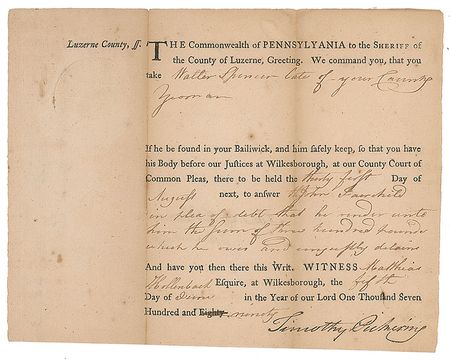 Luzerne County, ſſ.
THE Commonwealth of PENNSYLVANIA to the SHERIFF of
the County of Luzerne, Greeting. We command you, that you
take Walter Spencer late of your County
Yeoman
If he be found in your Bailiwick, and him safely keep, so that you have
his Body before our Justices at Wilkesborough, at our County Court of
Common Pleas, there to be held the thirty first Day of
August next, to answer John Fairchild
in plea of debt that he render unto
him the sum of three hundred pounds
which he owes and unjustly detains
And have you then there this Writ. WITNESS Matthias
Hollenback Esquire, at Wilkesborough, the fifth
Day of June in the Year of our Lord One Thousand Seven
Hundred and Eighty ninety
Timothy Pickering